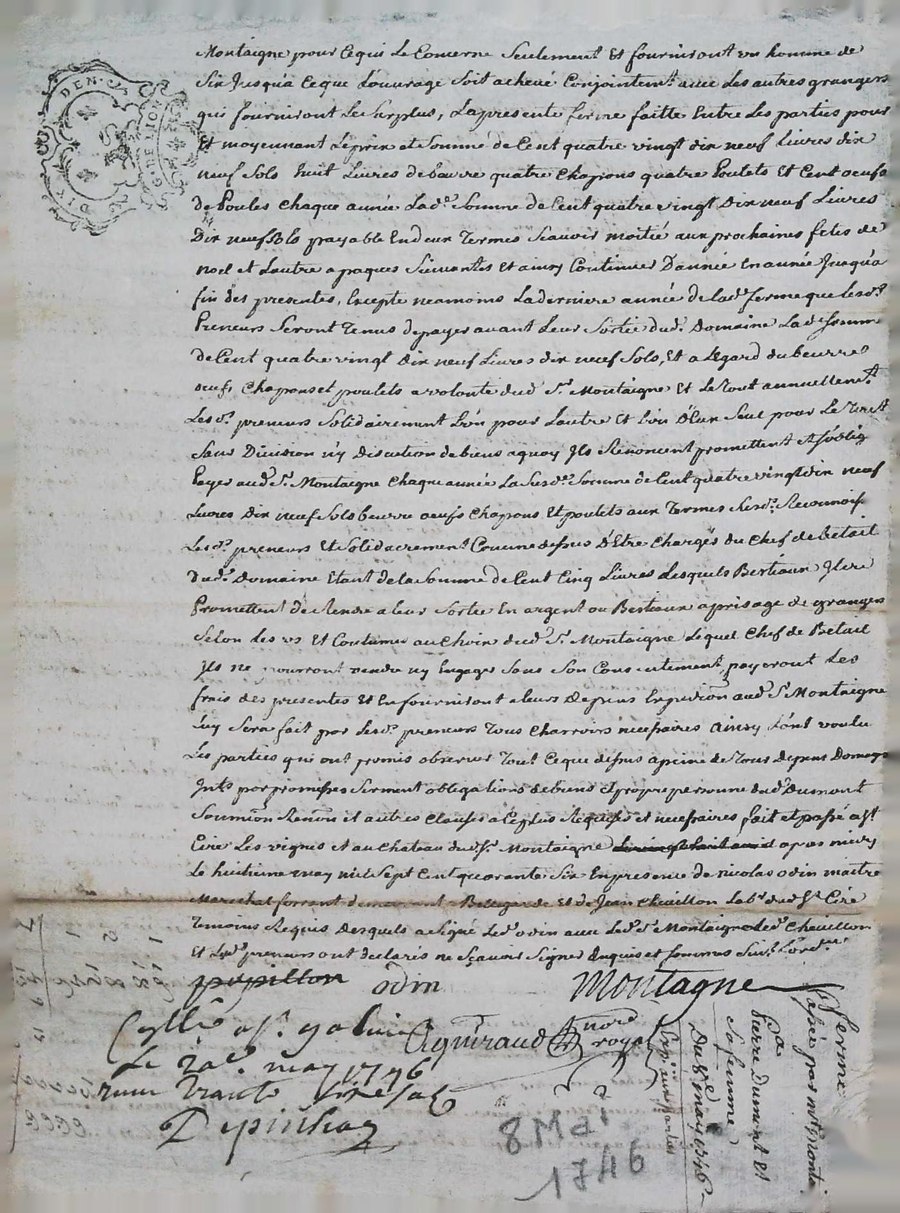 DIX DEN.
G. DE LION
Montaigne pour Cequi Le Concerne Seulement Et fourniront un homme de
Six Jusqua Ceque Louvrage Soit achevé Conjointemt. avec Les autres grangers
qui fourniront Le Surplus, Lapresente ferme faitte Entre Les parties pour
Et moyennant Leprix et Somme de Cent quatre vingt dix neuf Livres dix
neuf Sols huit Livres de beurre quatre Chapons quatre Poulets Et Cent oeufs
de Poules Chaque année Lade. Somme de Cent quatre vingt Dix neuf Livres
Dix neuf Sols payable En deux Termes Scavoir moitié aux prochaines fetes de
noel et Lautre a paques Suivantes Et ainsy Continuer Dannée En année Jusqua
fin des presentes, Excepté neamoins La derniere année de lade. ferme que Lesds.
Preneurs Seront Tenus depayer avant Leur Sortie dud. Domaine Lade. Somme
de Cent quatre vingt dix neuf Livres dix neuf Sols, Et a Legard du beurre
oeufs Chapons et poulets a volonté dud Sr. Montaigne Et Le tout annuellemt.
Lesds. preneurs Solidairement L'un pour Lautre Et L'un d'Eux Seul pour Le Tout
Sans Division n'y Discution de biens aquoy Ils Renoncent promettent et
Payer aud Sr. Montaigne Chaque année La Susde. Somme de Cent quatre vingt dix neuf
Livres Dix neuf Sols beurre oeufs Chapons Et poulets aux Termes Susds.
Lesds. preneurs Et Solidairement Comme dessus D'Etre Chargés du Chef de betail
Dud. Domaine Etant de la Somme de Cent Cinq Livres Lesquels Bestiaux
Promettent de Rendre a leur Sortie En argent ou Bestiaux a prisage de grangers
Selon Les us Et Coutumes au Choix dud Sr. Montaigne Lequel Chef de Betail
Ils ne pourront vendre ny Engager Sans Son Consentement, payeront Les
frais des presentes Et En fourniront a leurs depens Expedition aud Sr. Montaigne
Luy Sera fait par Lesds. preneurs Tous Charrois necessaires ainsy L'ont voulu
Les parties qui ont promis observer Tout Ceque dessus a peine de Tous depens Domages
Ints. par promesses Serment obligations de biens Et propre personne dud Dumont
Soumion. Renon. et autres Clauses a Ce Les Requises et necessaires fait et passé a St
Cire Les vignes et au Chateau dud Sr. Montaigne apres midy
Le huitieme may mil Sept Cent quarante Six En presence de nicolas odin maitre
Marechal ferrant demeurant a Bellegarde Et de Jean Chevillon Labr. dud St Cire
Temoins Requis Desquels a Signé Led. odin avec Led. Sr. Montaigne Led. Chevillon
Et Lesds. preneurs ont declarés ne Scavoir Signer Enquis et Sommés Suivt. Lordce.
papillon odin Montagne
Aguiraud nore royal
Le may 1746
8 Mai
1746
Ferme
Pierre Dumont Et
Sa femme
Du 8e. may 1746